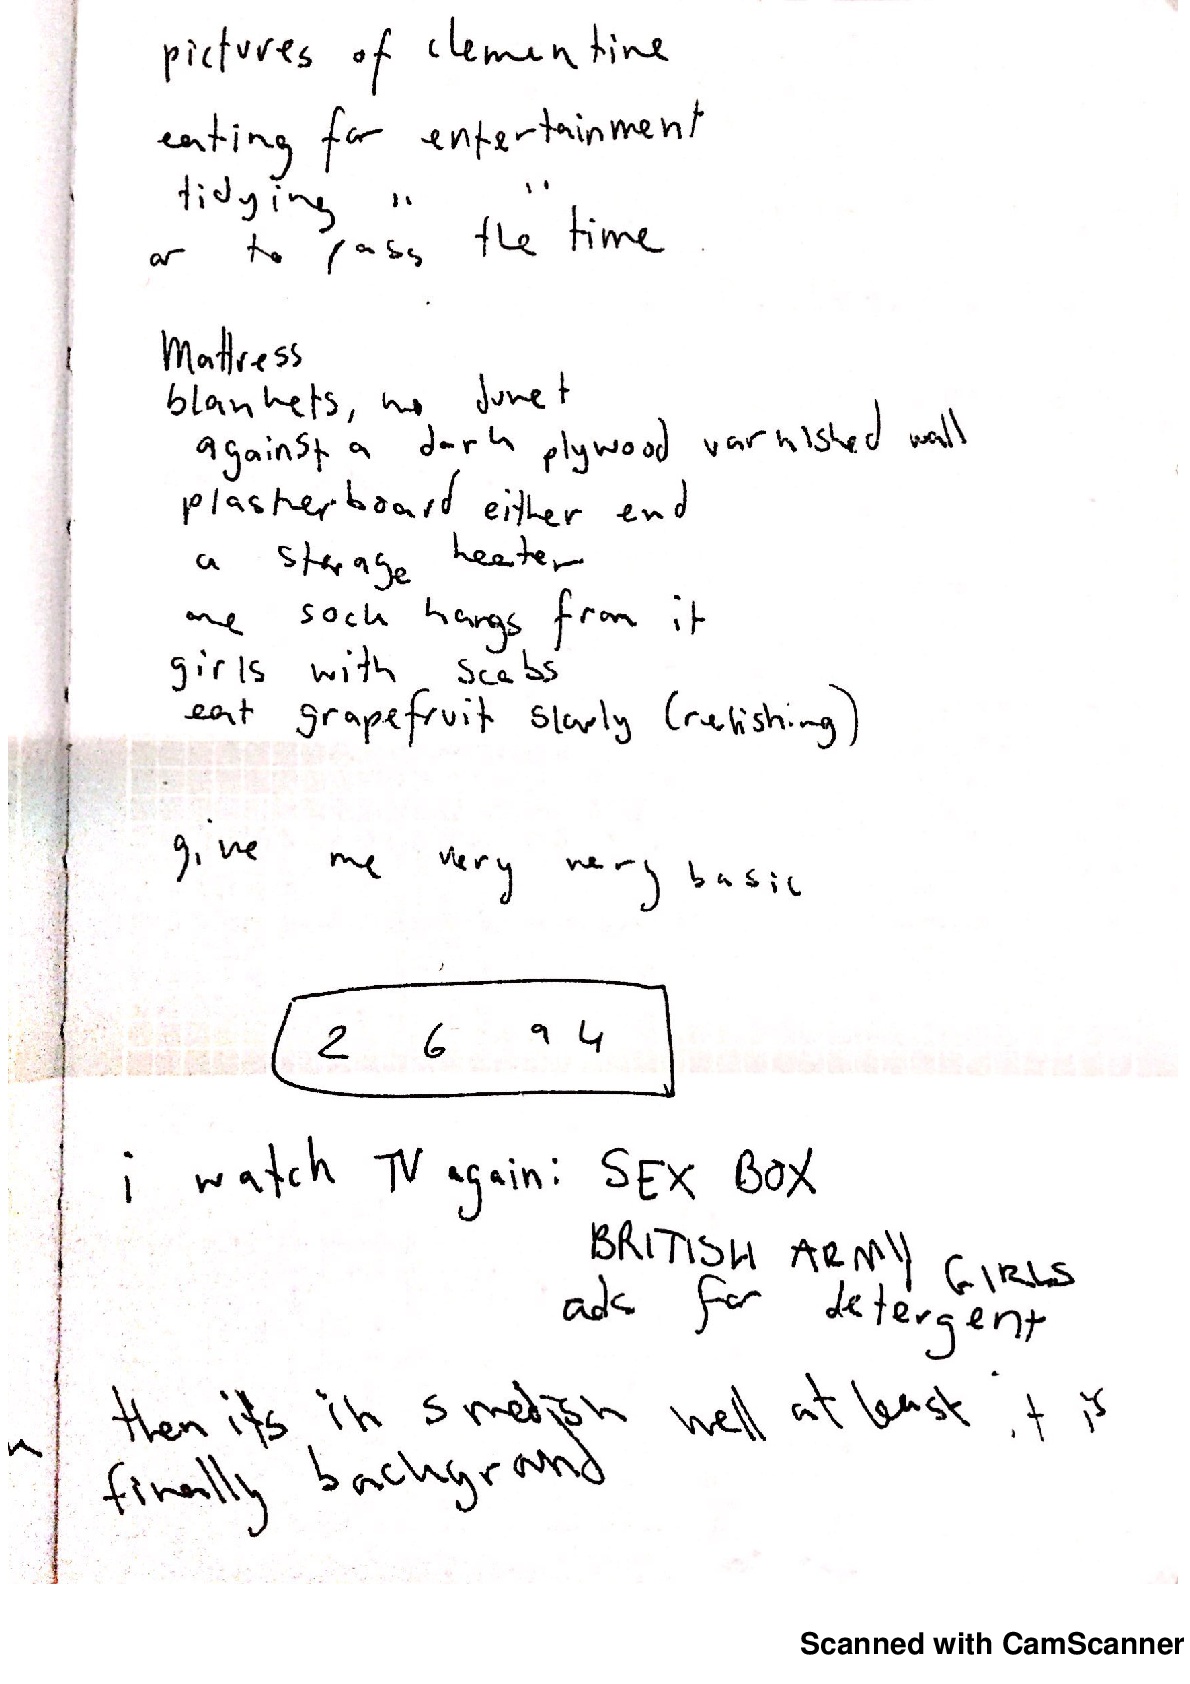 pictures of clementine
eating for entertainment
tidying " "
or to pass the time
Mattress
blankets, no duvet
against a dark plywood varnished wall
plasterboard either end
a storage heater
one sock hangs from it
girls with scabs
eat grapefruit slowly (relishing)
give me very very basic
2 6 9 4
i watch TV again: SEX BOX
BRITISH ARMY GIRLS
ads for detergent
then it's in swedish well at least it is
finally background
Scanned with CamScanner